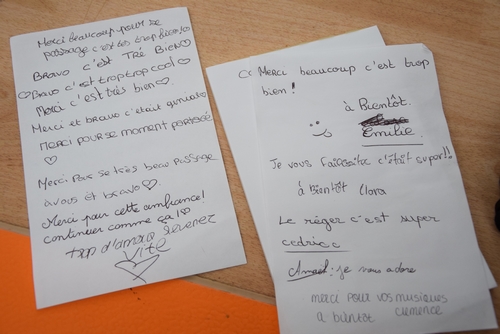 Merci beaucoup pour se
passage c'est très trop bien
BRAVO c'EST TRÉ BIEN
Bravo c'est trop trop cool
Merci c'est très bien
Merci et bravo c'était géniale
MERCI POUR SE MOMENT PARTAGÉ
Merci Pour se très beau Passage
à vous et bravo
Merci pour cette ambiance!
continuer comme ça!
trop d'amour revenez
Vite
Merci beaucoup c'est trop
bien!
à Bientôt.
Emilie.
Je vous c'était super!!
à bientôt Clara
Le c'est super
cedric
je vous adore
merci pour vos musiques
a bientot clemence